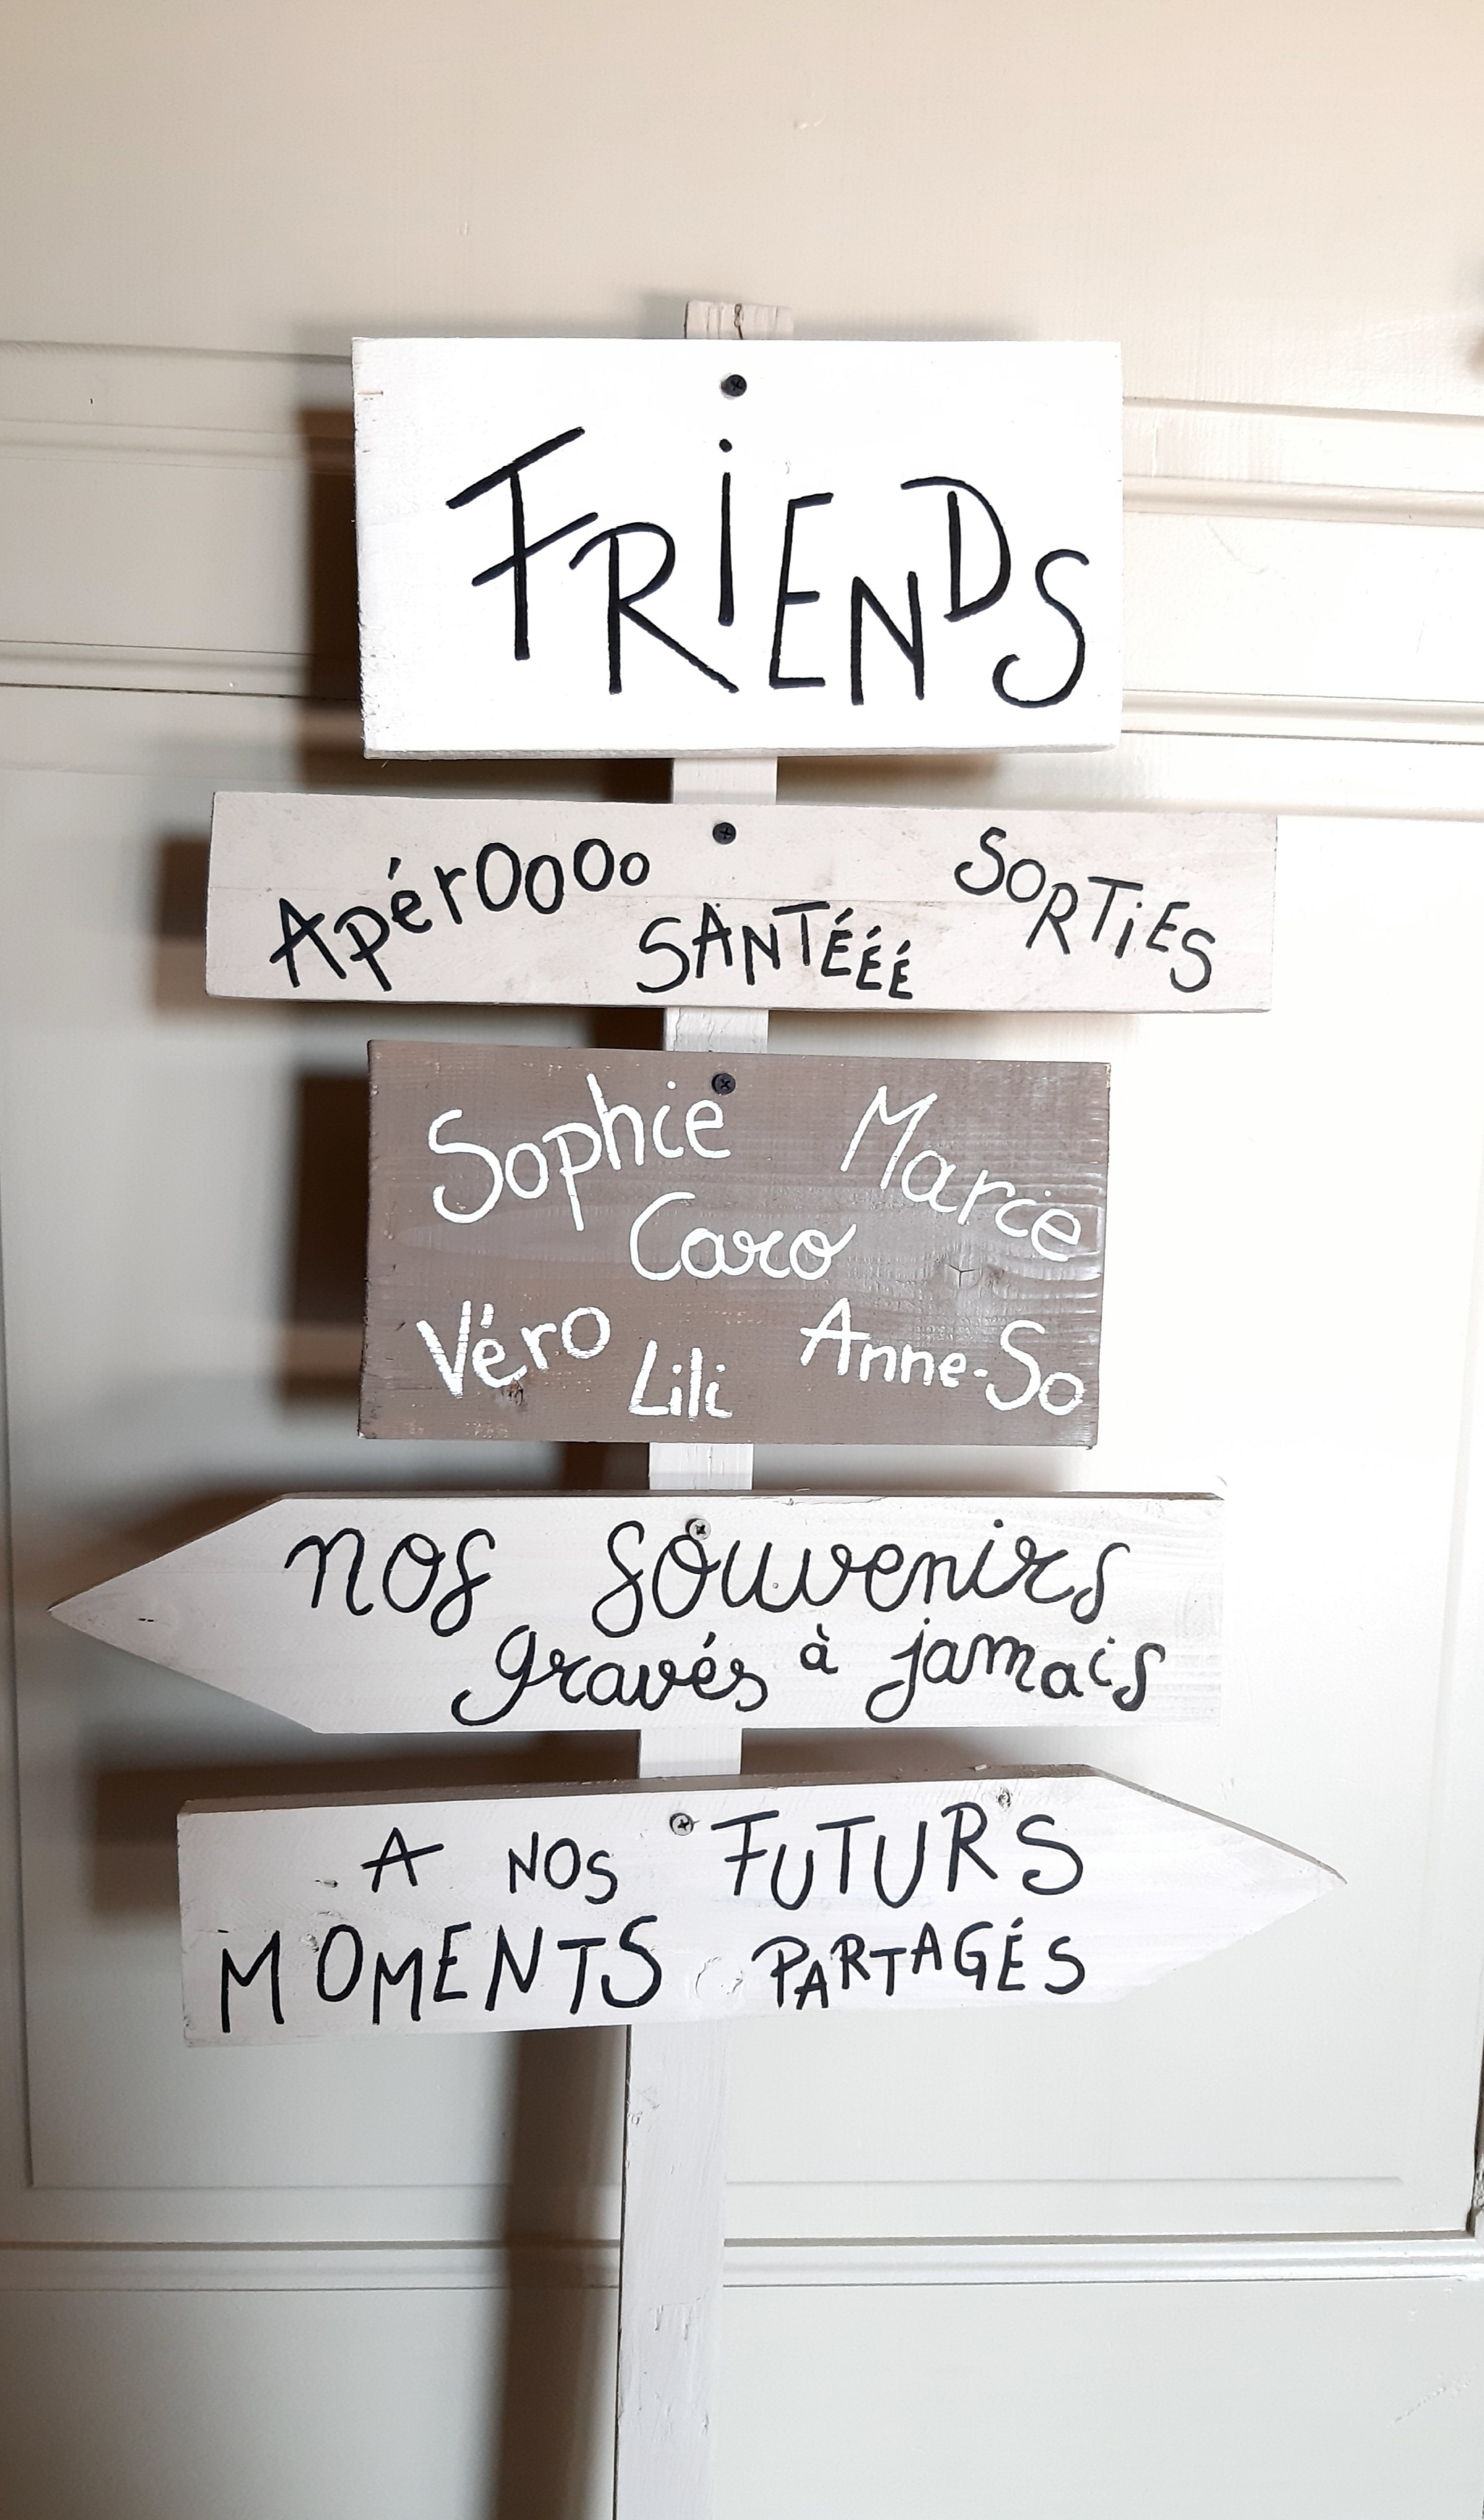 FRiENDS
ApérOoOo
SANTÉÉÉ
SORTiES
Sophie
Marie
Caro
Véro
Lili
Anne-So
nos souvenirs
gravés à jamais
A NOS FUTURS
MOMENTS PARTAGÉS